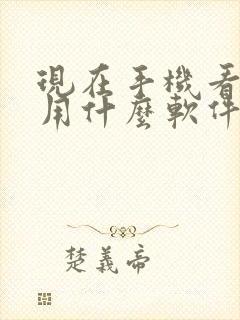 現在手機看
用什麼軟件
楚義帝